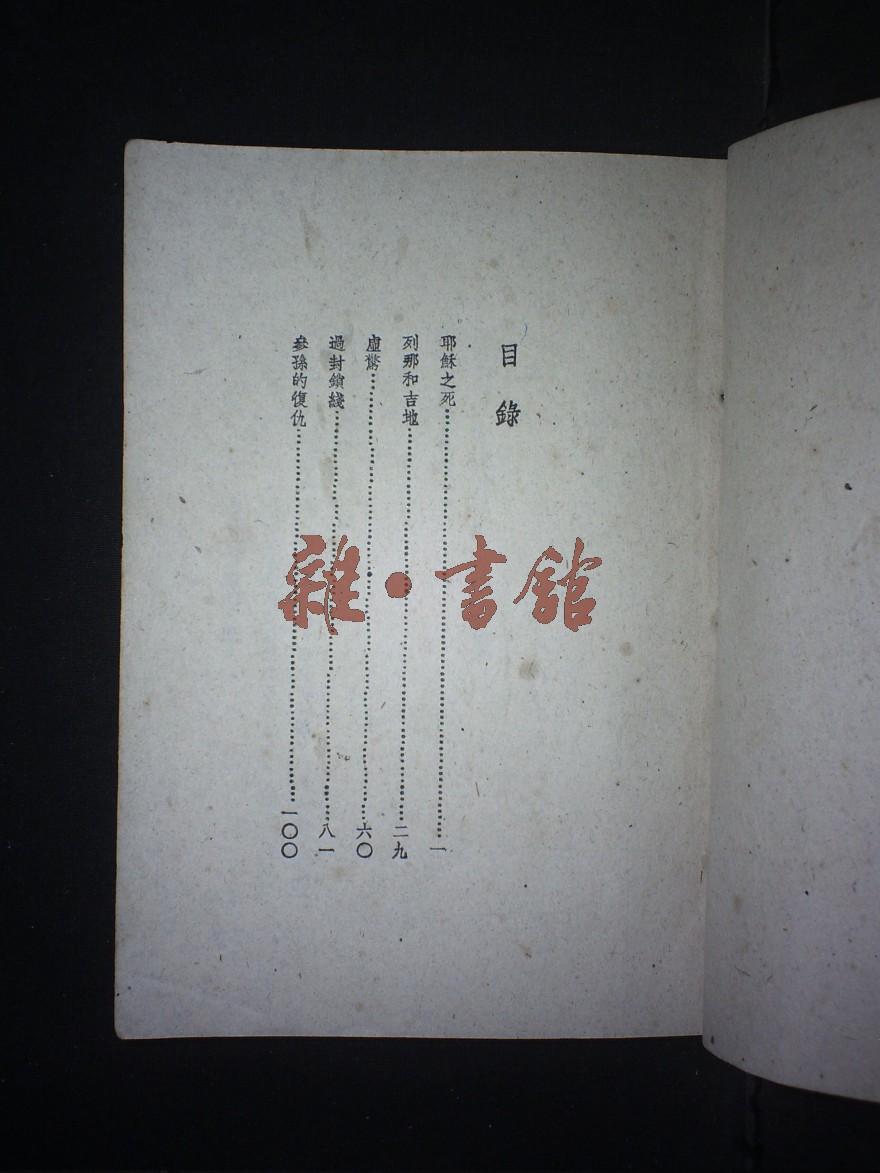 目錄
耶穌之死……一
列那和吉地……二九
虛驚……六〇
過封鎖綫……八一
參孫的復仇……一〇〇
雜·書館